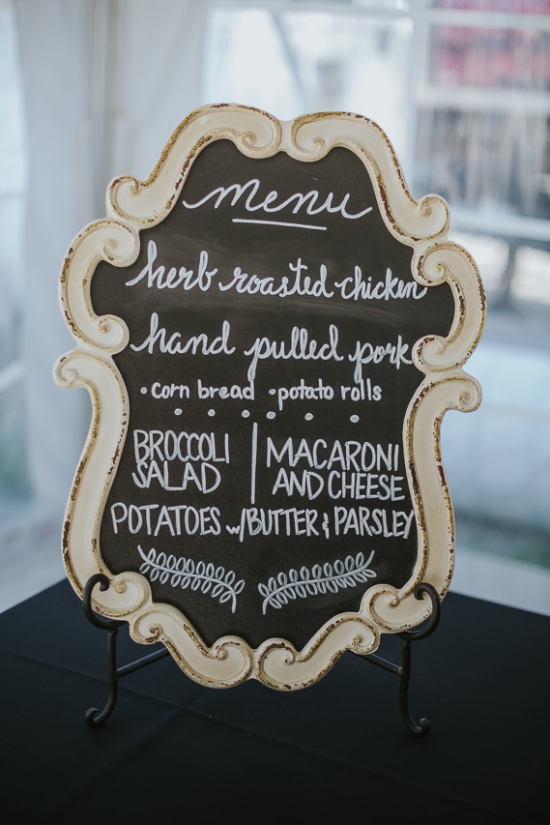 menu
herb roasted chicken
hand pulled pork
•corn bread •potato rolls
BROCCOLI SALAD
MACARONI AND CHEESE
POTATOES w/BUTTER & PARSLEY